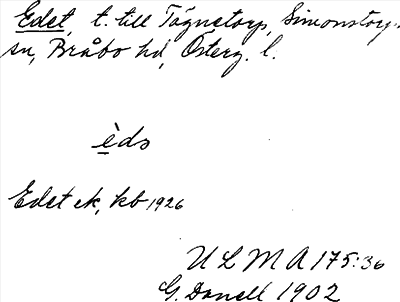 Edet, t. till Tågnetorp, Simonstorps
sn, Bråbo hd, Österg. l.
èds
Edet ek, kb 1926
ULMA 175:36
G. Danell 1902